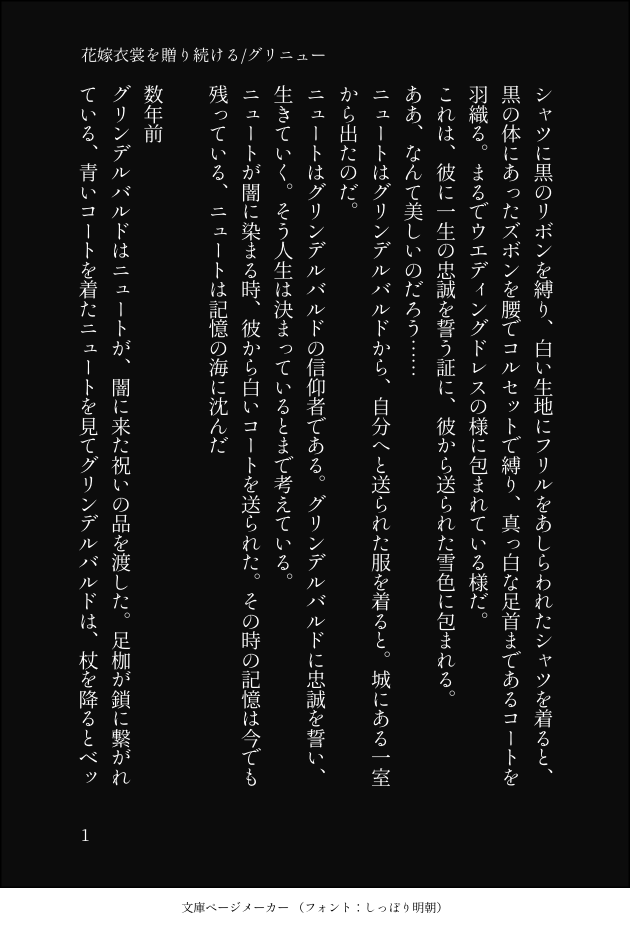 花嫁衣裳を贈り続ける/グリニュー
シャツに黒のリボンを縛り、白い生地にフリルをあしらわれたシャツを着ると、
黒の体にあったズボンを腰でコルセットで縛り、真っ白な足首まであるコートを
羽織る。まるでウエディングドレスの様に包まれている様だ。
これは、彼に一生の忠誠を誓う証に、彼から送られた雪色に包まれる。
ああ、なんて美しいのだろう……
ニュートはグリンデルバルドから、自分へと送られた服を着ると。城にある一室
から出たのだ。
ニュートはグリンデルバルドの信仰者である。グリンデルバルドに忠誠を誓い、
生きていく。そう人生は決まっているとまで考えている。
ニュートが闇に染まる時、彼から白いコートを送られた。その時の記憶は今でも
残っている、ニュートは記憶の海に沈んだ
数年前
グリンデルバルドはニュートが、闇に来た祝いの品を渡した。足枷が鎖に繋がれ
ている、青いコートを着たニュートを見てグリンデルバルドは、杖を降るとベッ
1
文庫ページメーカー （フォント：しっぽり明朝）